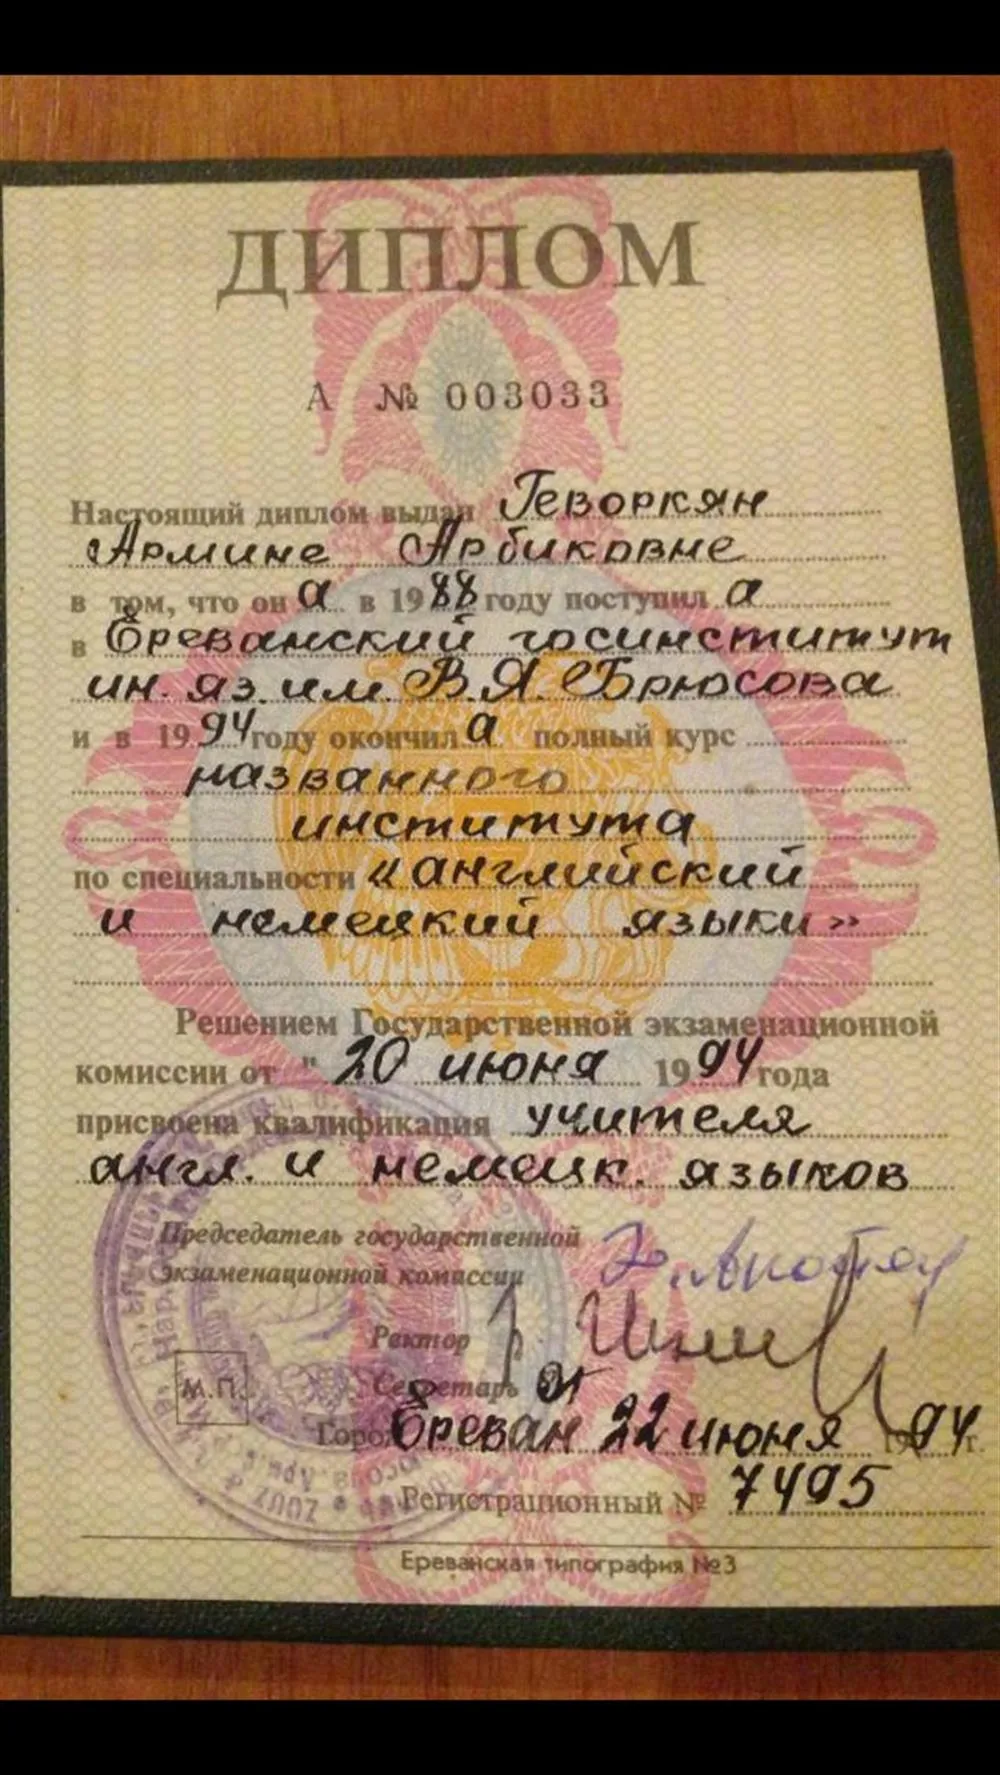 ДИПЛОМ
А № 003033
Настоящий диплом выдан Геворкян
Армине Арбиковне
в том, что он а в 1988 году поступил а
в Ереванский госинститут
ин. яз. им. В. Я. Брюсова
и в 1994 году окончил а полный курс
названного
института
по специальности «английский
и немецкий языки»
Решением Государственной экзаменационной
комиссии от " 20 июня 1994 года
присвоена квалификация учителя
англ. и немецк. языков
Председатель государственной
экзаменационной комиссии
Ректор
Секретарь
М.П.
Город Ереван 22 июня 1994 г.
Регистрационный № 7495
Ереванская типография №3